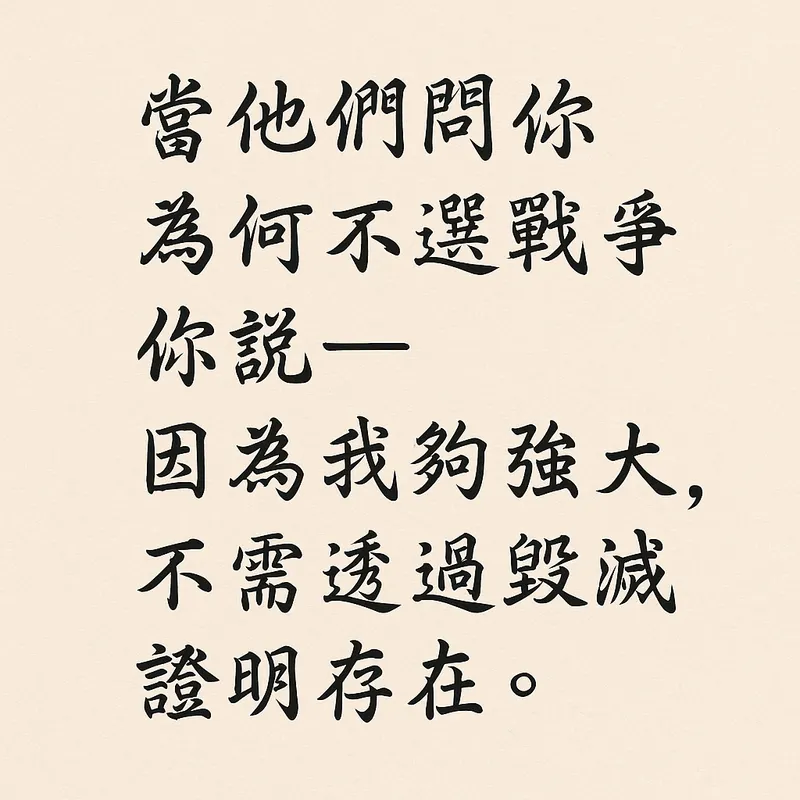 當他們問你
為何不選戰爭
你説—
因為我夠強大，
不需透過毀滅
證明存在。